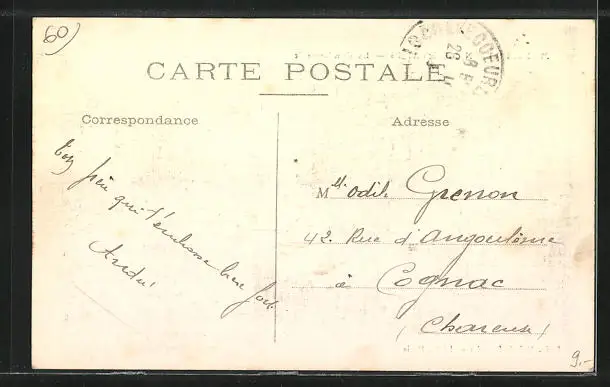 60)
CARTE POSTALE
Correspondance
Adresse
Ton frère qui t'embrasse bien fort
André
Mlle Odile Grenon
42. Rue d'Angoulême
à Cognac
(Charente)
9.-